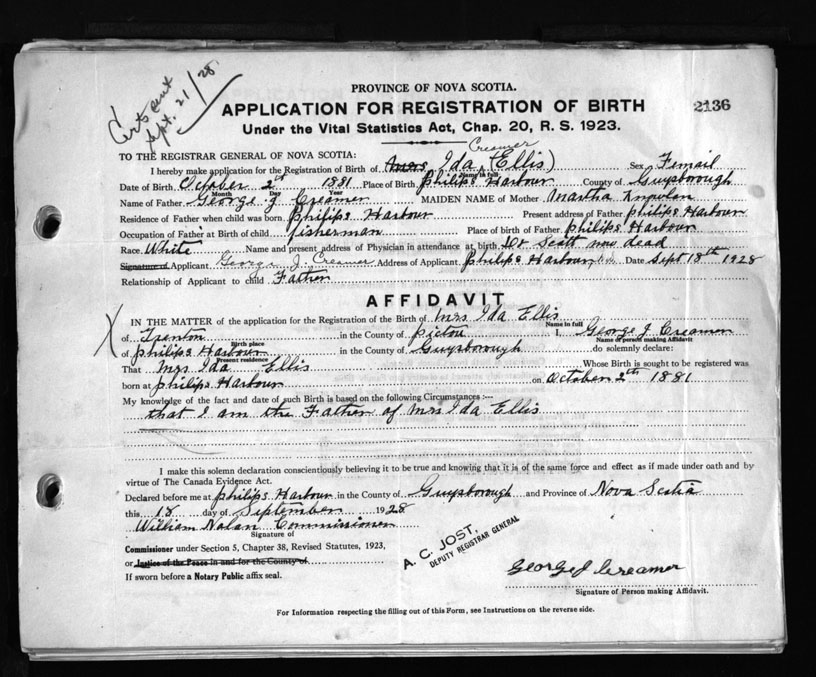 Cert sent
Sept. 21/28
PROVINCE OF NOVA SCOTIA.
APPLICATION FOR REGISTRATION OF BIRTH
2136
Under the Vital Statistics Act, Chap. 20, R. S. 1923.
TO THE REGISTRAR GENERAL OF NOVA SCOTIA:
Creamer
I hereby make application for the Registration of Birth of Mrs Ida (Ellis) Sex Femail
Name in full
Date of Birth October 2th 1881 Place of Birth philips Harbour County of Guysborough
Month Day Year
Name of Father George J Creamer MAIDEN NAME of Mother Martha
Residence of Father when child was born philips Harbour Present address of Father philips Harbour
Occupation of Father at Birth of child fisherman Place of birth of Father philips Harbour
Race White Name and present address of Physician in attendance at birth Dr Scott now dead
Signature of Applicant George J. Creamer Address of Applicant philips Harbour Date Sept 18th 1928
Relationship of Applicant to child Father
AFFIDAVIT
IN THE MATTER of the application for the Registration of the Birth of Mrs Ida Ellis
Name in full
X of Trenton in the County of pictou I, George J Creamer
Birth place Name of person making Affidavit
of philips Harbour in the County of Guysborough do solemnly declare:
Present residence
That Mrs Ida Ellis Whose Birth is sought to be registered was
born at philips Harbour on October 2th 1881
My knowledge of the fact and date of such Birth is based on the following Circumstances :--
that I am the Father of Mrs Ida Ellis
I make this solemn declaration conscientiously believing it to be true and knowing that it is of the same force and effect as if made under oath and by
virtue of The Canada Evidence Act.
Declared before me at philips Harbour in the County of Guysborough and Province of Nova Scotia
this 18 day of September 1928
William Nolan Commissioner
Signature of
Commissioner under Section 5, Chapter 38, Revised Statutes, 1923,
or Justice of the Peace in and for the County of
If sworn before a Notary Public affix seal.
A. C. JOST,
DEPUTY REGISTRAR GENERAL
George J Creamer
Signature of Person making Affidavit.
For Information respecting the filling out of this Form, see Instructions on the reverse side.